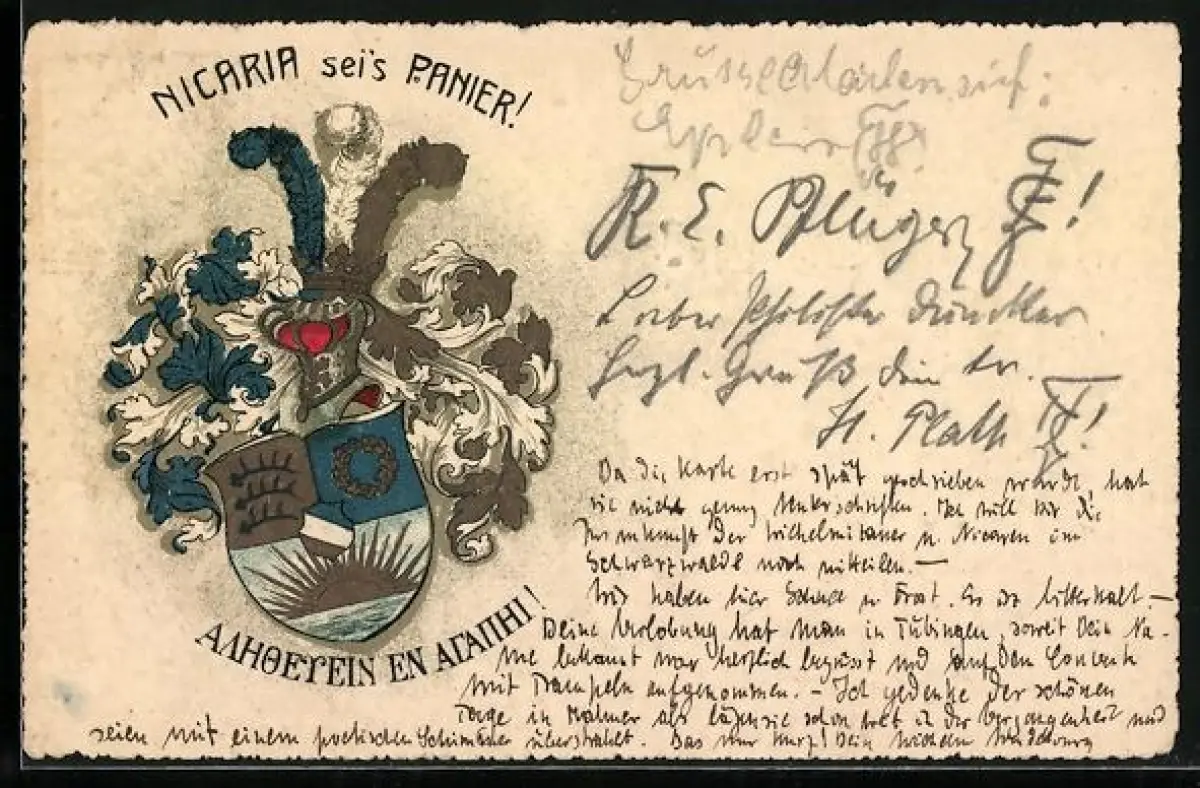 NICARIA sei's PANIER!
R. E. Pflüger
Lieber Philister
Herzl. Gruß Dein tr.
H. Plath
Da die Karte erst spät geschrieben wurde, hat
sie nicht genug Unterschriften. Man will Dir die
der Wilhelmitaner u. Nicaren im
Schwarzwalde noch mitteilen. —
Wir haben hier Schnee u Frost. Es ist bitterkalt. —
ΑΛΗΘΕΥΕΙΝ ΕΝ ΑΓΑΠΗΙ!
Deine Verlobung hat man in Tübingen, soweit Dein Na-
me bekannt war herzlich begrüsst und auf dem Convente
mit Trampeln aufgenommen. - Ich gedenke der schönen
Tage in als lägen sie schon weit in der Vergangenheit und
seien mit einem poetischen Schimmer überstrahlt. Das nur kurz! Dein